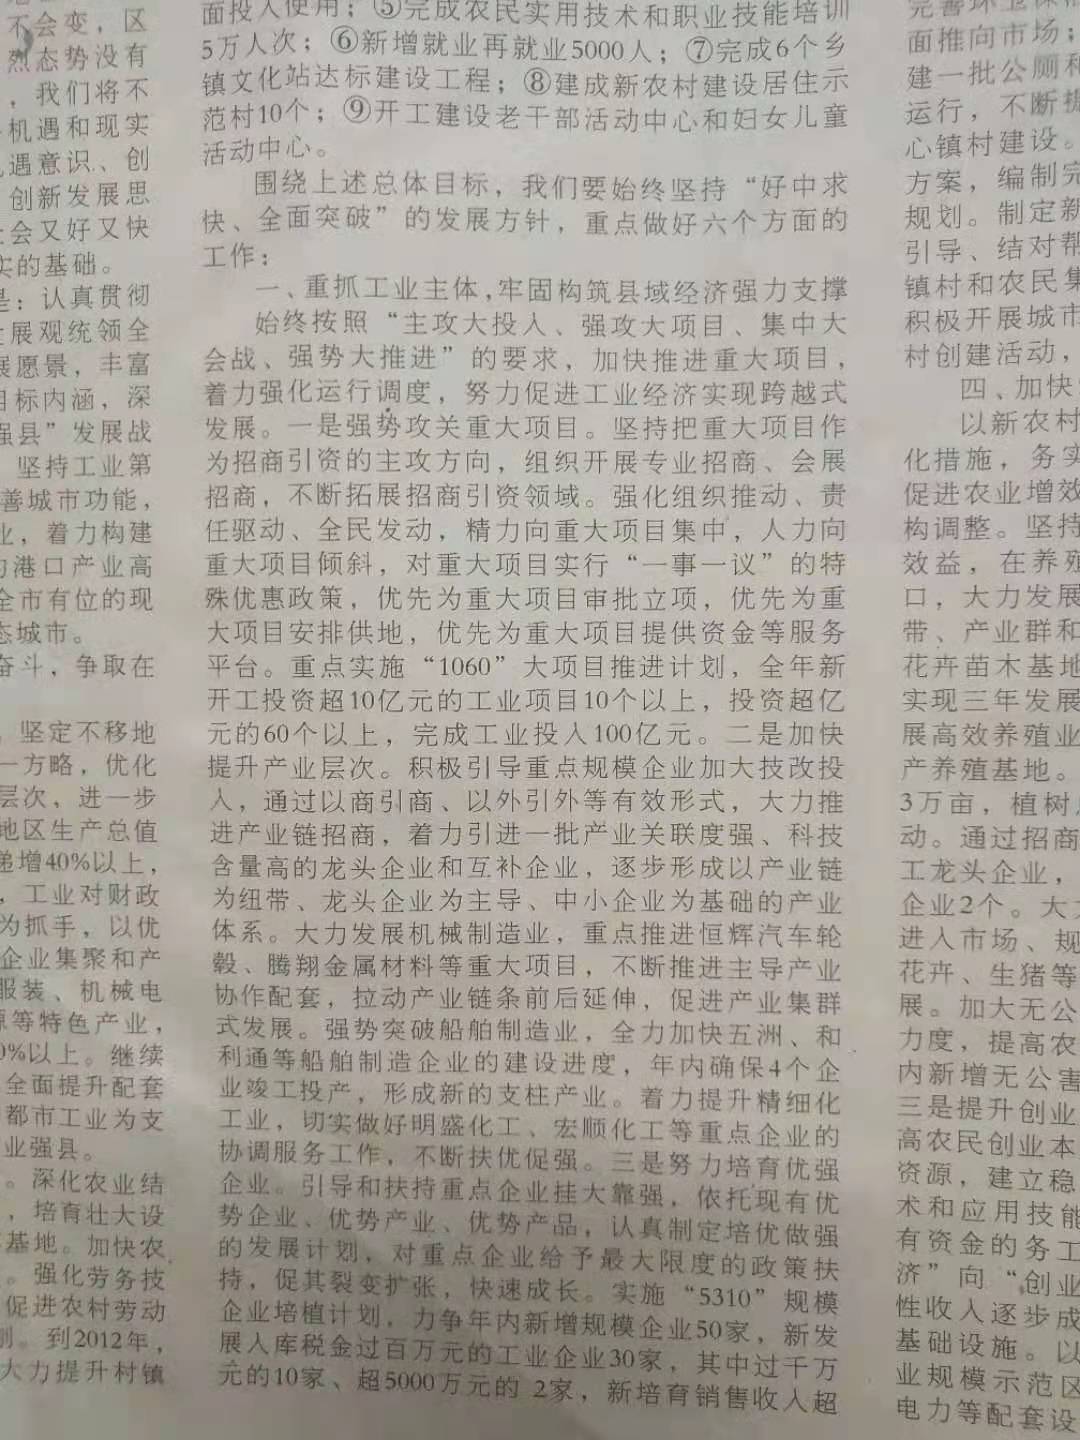 不会变，区
烈态势没有
，我们将不
机遇和现实
遇意识、创
创新发展思
会又好又快
实的基础。
是：认真贯彻
展观统领全
展愿景，丰富
目标内涵，深
强县”发展战
坚持工业第
善城市功能，
业，着力构建
的港口产业高
全市有位的现
态城市。
奋斗，争取在
坚定不移地
一方略，优化
层次，进一步
地区生产总值
递增40%以上，
，工业对财政
为抓手，以优
企业集聚和产
服装、机械电
源等特色产业，
0%以上。继续
全面提升配套
都市工业为支
业强县。
。深化农业结
，培育壮大设
基地。加快农
。强化劳务技
促进农村劳动
到2012年，
大力提升村镇
面投入使用；⑤完成农民实用技术和职业技能培训
5万人次；⑥新增就业再就业5000人；⑦完成6个乡
镇文化站达标建设工程；⑧建成新农村建设居住示
范村10个；⑨开工建设老干部活动中心和妇女儿童
活动中心。
围绕上述总体目标，我们要始终坚持“好中求
快、全面突破”的发展方针，重点做好六个方面的
工作：
一、重抓工业主体，牢固构筑县域经济强力支撑
始终按照“主攻大投入、强攻大项目、集中大
会战、强势大推进”的要求，加快推进重大项目，
着力强化运行调度，努力促进工业经济实现跨越式
发展。一是强势攻关重大项目。坚持把重大项目作
为招商引资的主攻方向，组织开展专业招商、会展
招商，不断拓展招商引资领域。强化组织推动、责
任驱动、全民发动，精力向重大项目集中，人力向
重大项目倾斜，对重大项目实行“一事一议”的特
殊优惠政策，优先为重大项目审批立项，优先为重
大项目安排供地，优先为重大项目提供资金等服务
平台。重点实施“1060”大项目推进计划，全年新
开工投资超10亿元的工业项目10个以上，投资超亿
元的60个以上，完成工业投入100亿元。二是加快
提升产业层次。积极引导重点规模企业加大技改投
入，通过以商引商、以外引外等有效形式，大力推
进产业链招商，着力引进一批产业关联度强、科技
含量高的龙头企业和互补企业，逐步形成以产业链
为纽带、龙头企业为主导、中小企业为基础的产业
体系。大力发展机械制造业，重点推进恒辉汽车轮
毂、腾翔金属材料等重大项目，不断推进主导产业
协作配套，拉动产业链条前后延伸，促进产业集群
式发展。强势突破船舶制造业，全力加快五洲、和
利通等船舶制造企业的建设进度，年内确保4个企
业竣工投产，形成新的支柱产业。着力提升精细化
工业，切实做好明盛化工、宏顺化工等重点企业的
协调服务工作，不断扶优促强。三是努力培育优强
企业。引导和扶持重点企业挂大靠强，依托现有优
势企业、优势产业、优势产品，认真制定培优做强
的发展计划，对重点企业给予最大限度的政策扶
持，促其裂变扩张，快速成长。实施“5310”规模
企业培植计划，力争年内新增规模企业50家，新发
展入库税金过百万元的工业企业30家，其中过千万
元的10家、超5000万元的 2家，新培育销售收入超
面推向市场；
建一批公厕和
运行，不断提
心镇村建设。
方案，编制完
规划。制定新
引导、结对帮
镇村和农民集
积极开展城市
村创建活动，
四、加快
以新农村
化措施，务实
促进农业增效
构调整。坚持
效益，在养殖
口，大力发展
带、产业群和
花卉苗木基地
实现三年发展
展高效养殖业
产养殖基地。
3万亩，植树
动。通过招商
工龙头企业，
企业2个。大
进入市场、规
花卉、生猪等
展。加大无公
力度，提高农
内新增无公害
三是提升创业
高农民创业本
资源，建立稳
术和应用技能
有资金的务工
济”向“创业
性收入逐步成
基础设施。以
业规模示范区
电力等配套设